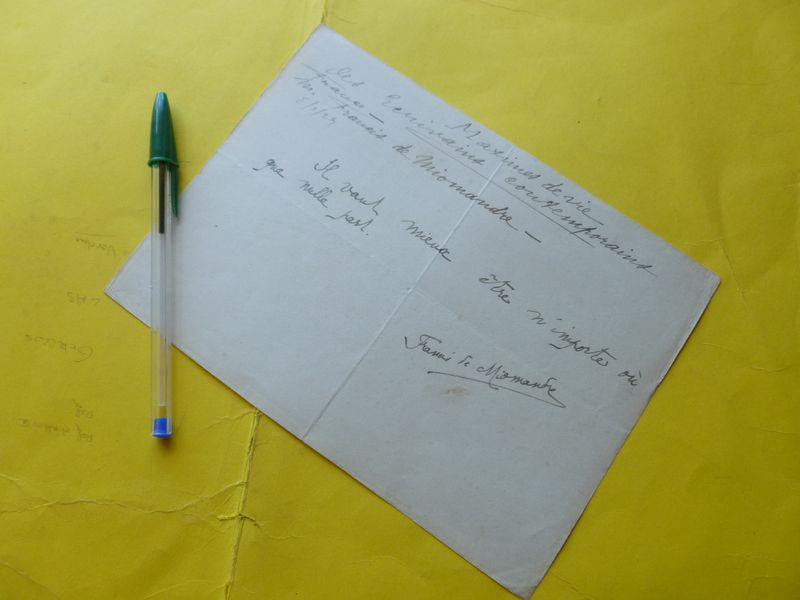 Maximes de vie
des Ecrivains contemporains
M. Francis de Miomandre —
Il vaut mieux être n'importe où
que nulle part.
Francis de Miomandre